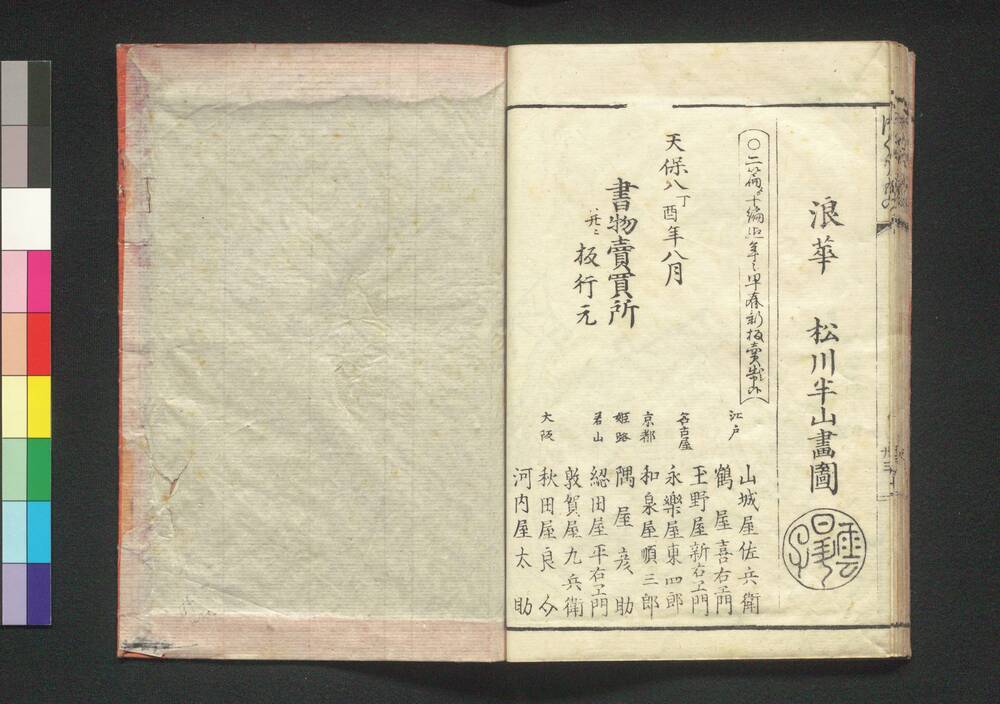 浪華 松川半山畫圖
〇二篇ゟ十編迄年々早春新板賣出
天保八丁酉年八月
書物賣買所
并ニ板行元
江戸 山城屋佐兵衛
鶴屋喜右エ門
名古屋 玉野屋新右エ門
永樂屋東四郎
京都 和泉屋順三郎
姫路 隅屋彦助
若山 総田屋平右エ門
敦賀屋九兵衛
大阪 秋田屋良介
河内屋太助